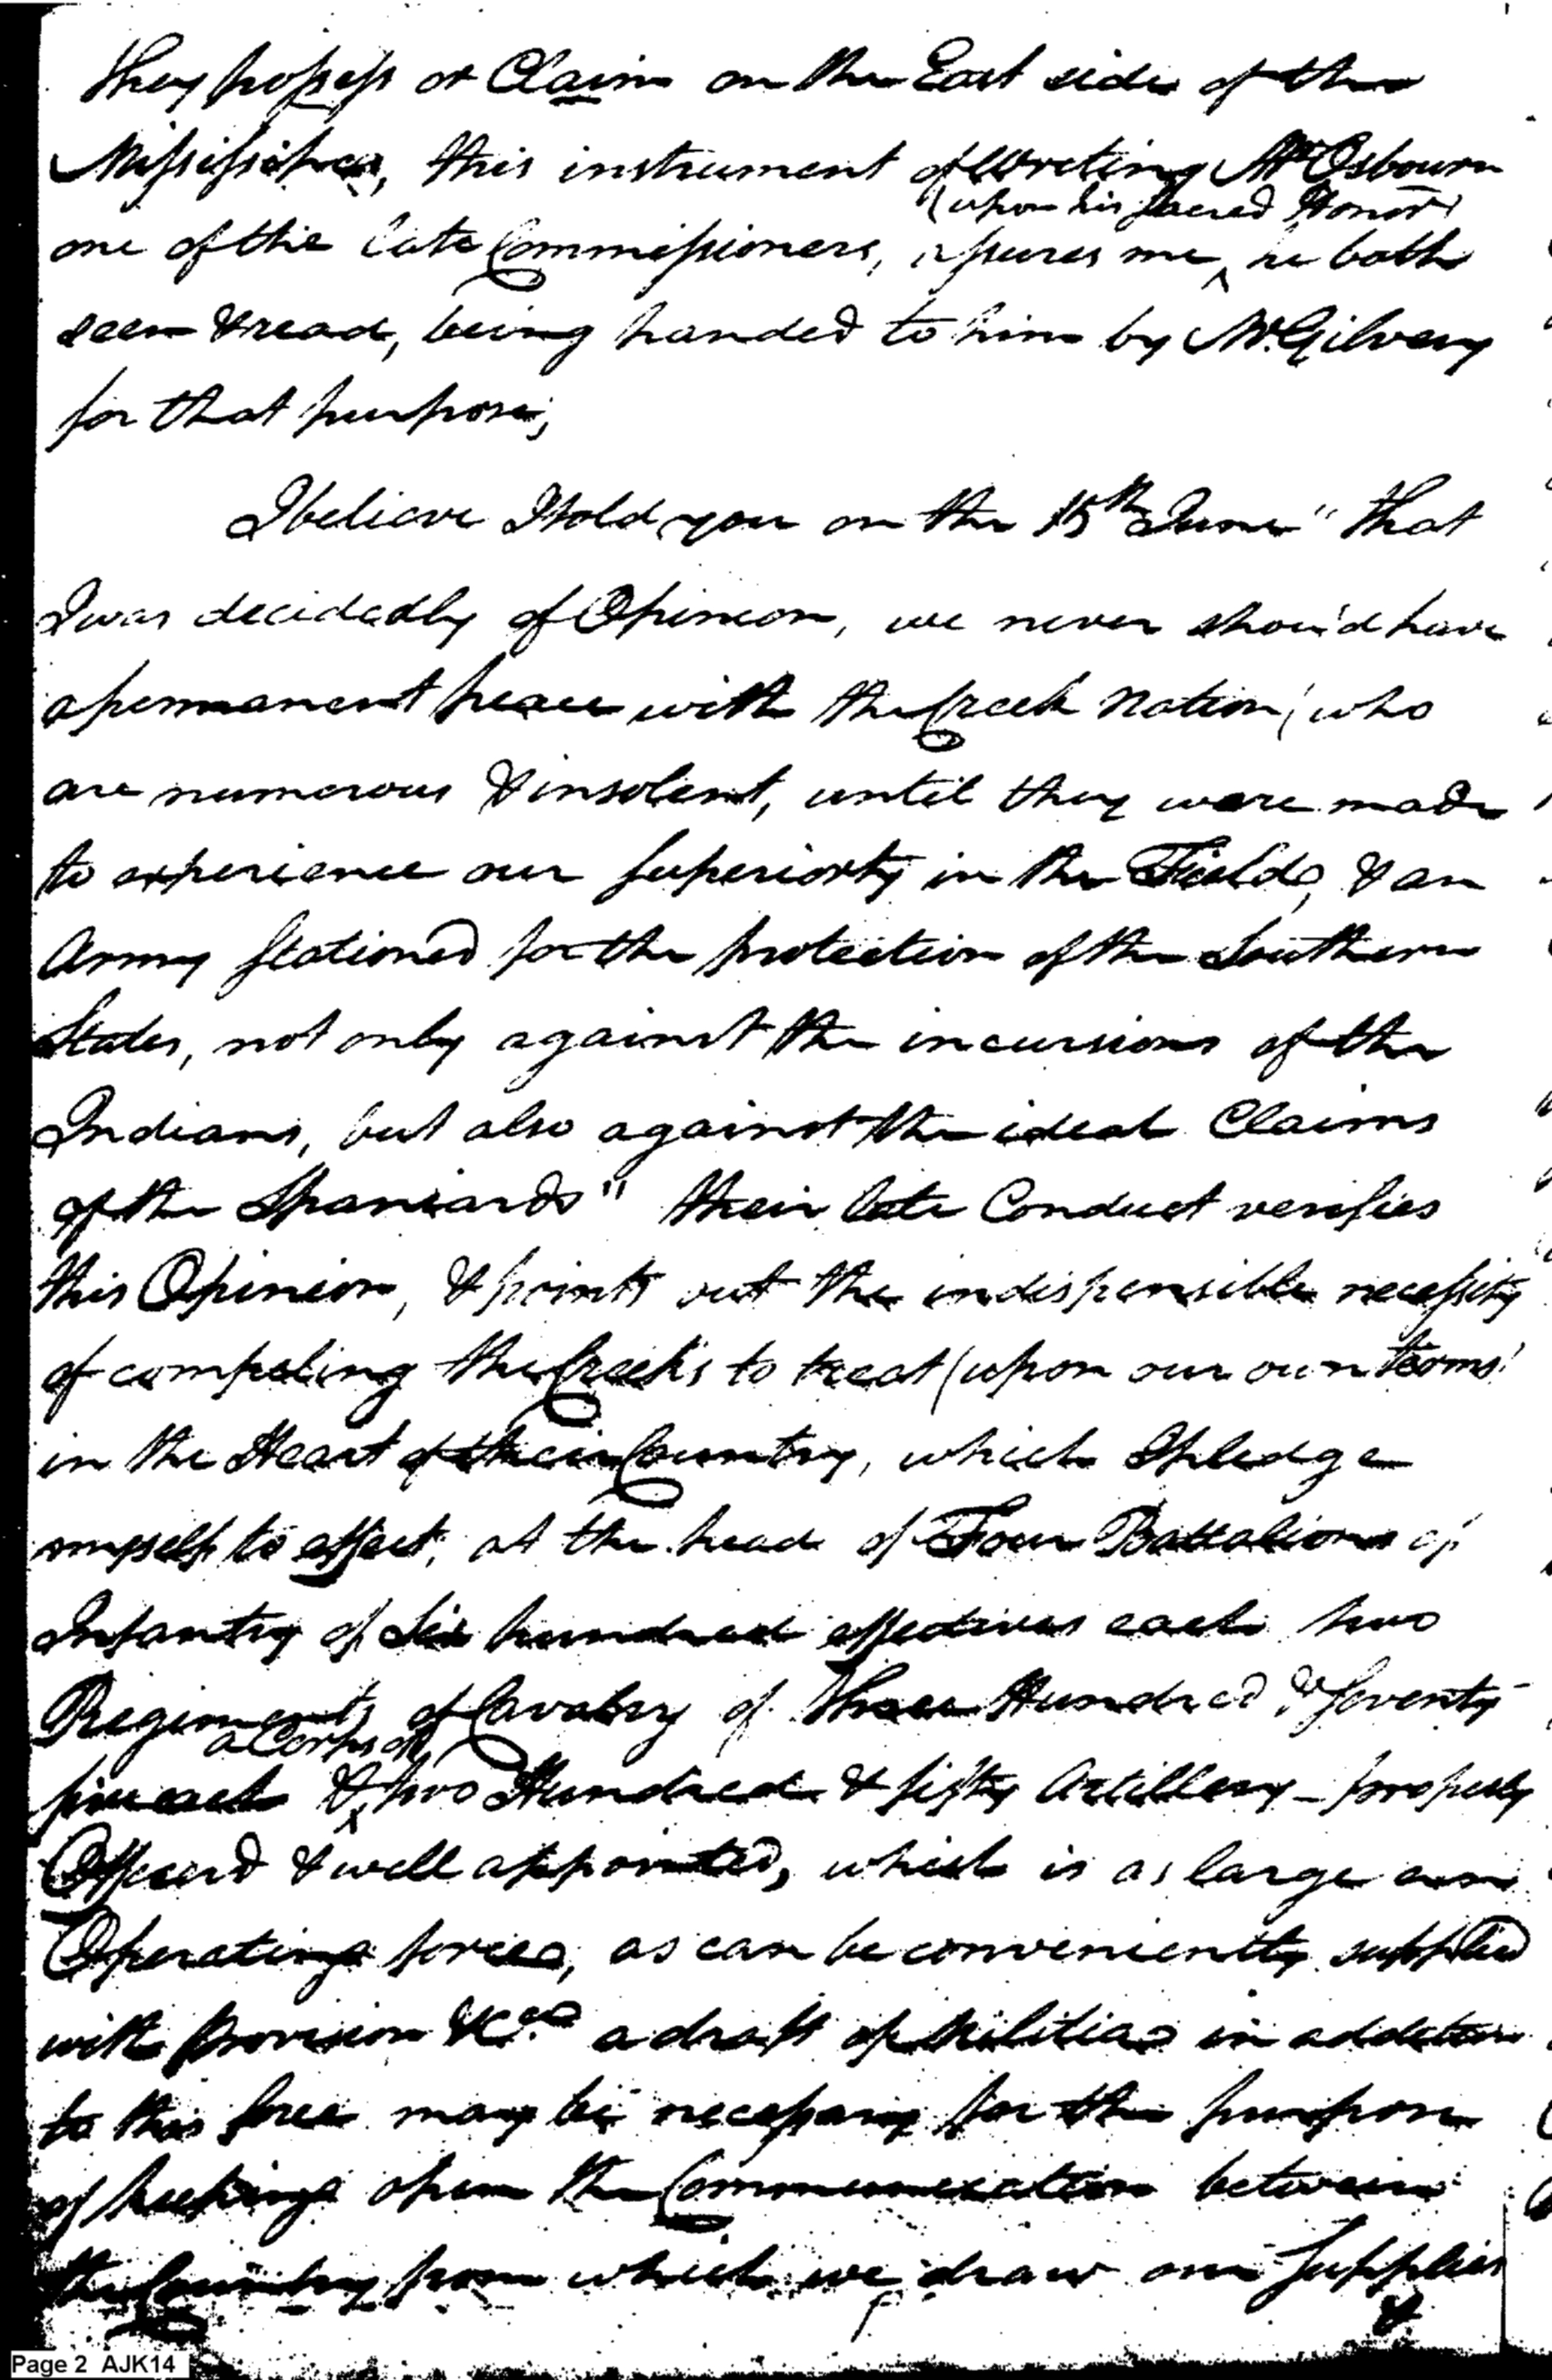 they possess or Claim on the East side of the
Mississipi, this instrument of Writing Mr Osbourn
(upon his sacred Honor)
one of the late Commissioners, assures me he both
seen & read, being handed to him by McGilvery
for that purpose;
I believe I told you on the 15th June "that
I was decidedly of Opinion, we never shou'd have
a permanent peace with the Creek Nation, who
are numerous & insolent, until they were made
to experience our superiorty in the Field, & an
Army stationed for the protection of the Southern
States, not only against the incursions of the
Indians, but also against the ideal Claims
of the Spaniards" their late Conduct verifies
this Opinion, & points out the indispensible necessity
of compeling the Creeks to treat (upon our own terms)
in the Heart of their Country, which I pledge
myself to effect, at the head of Four Battalions of
Infantry of Six hundred effectives each two
Regiments of Cavalry of three Hundred & seventy
a Corps of
five each & two Hundred & fifty Artillery - properly
Officer'd & well appointed, which is as large an
Operating force, as can be conveniently supplied
with provision &ca a draft of Militia in addition
to this force may be necessary for the purpose
of keeping open the Communication between
the Country from which we draw our supplies
&
Page 2 AJK14